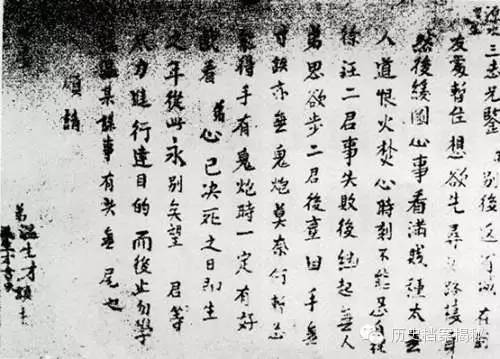 三志先鑒 別後返省
友處暫住想欲先尋頭路棲身
然後緩圖心事看滿賊種太無
人道恨火焚心時刻不能忘自從
徐汪二君事失敗後繼起無人
弟思欲步二君後塵因手無
寸鉄亦無鬼炮莫奈何暫忍
得手有鬼炮時一定有好
戲看弟心已決死之日即生
之年從此永別矣望 君等
力進行達目的而後止勿學
溫某謀事有頭無尾也
頌請
弟溫生才頓首
历史档案揭秘